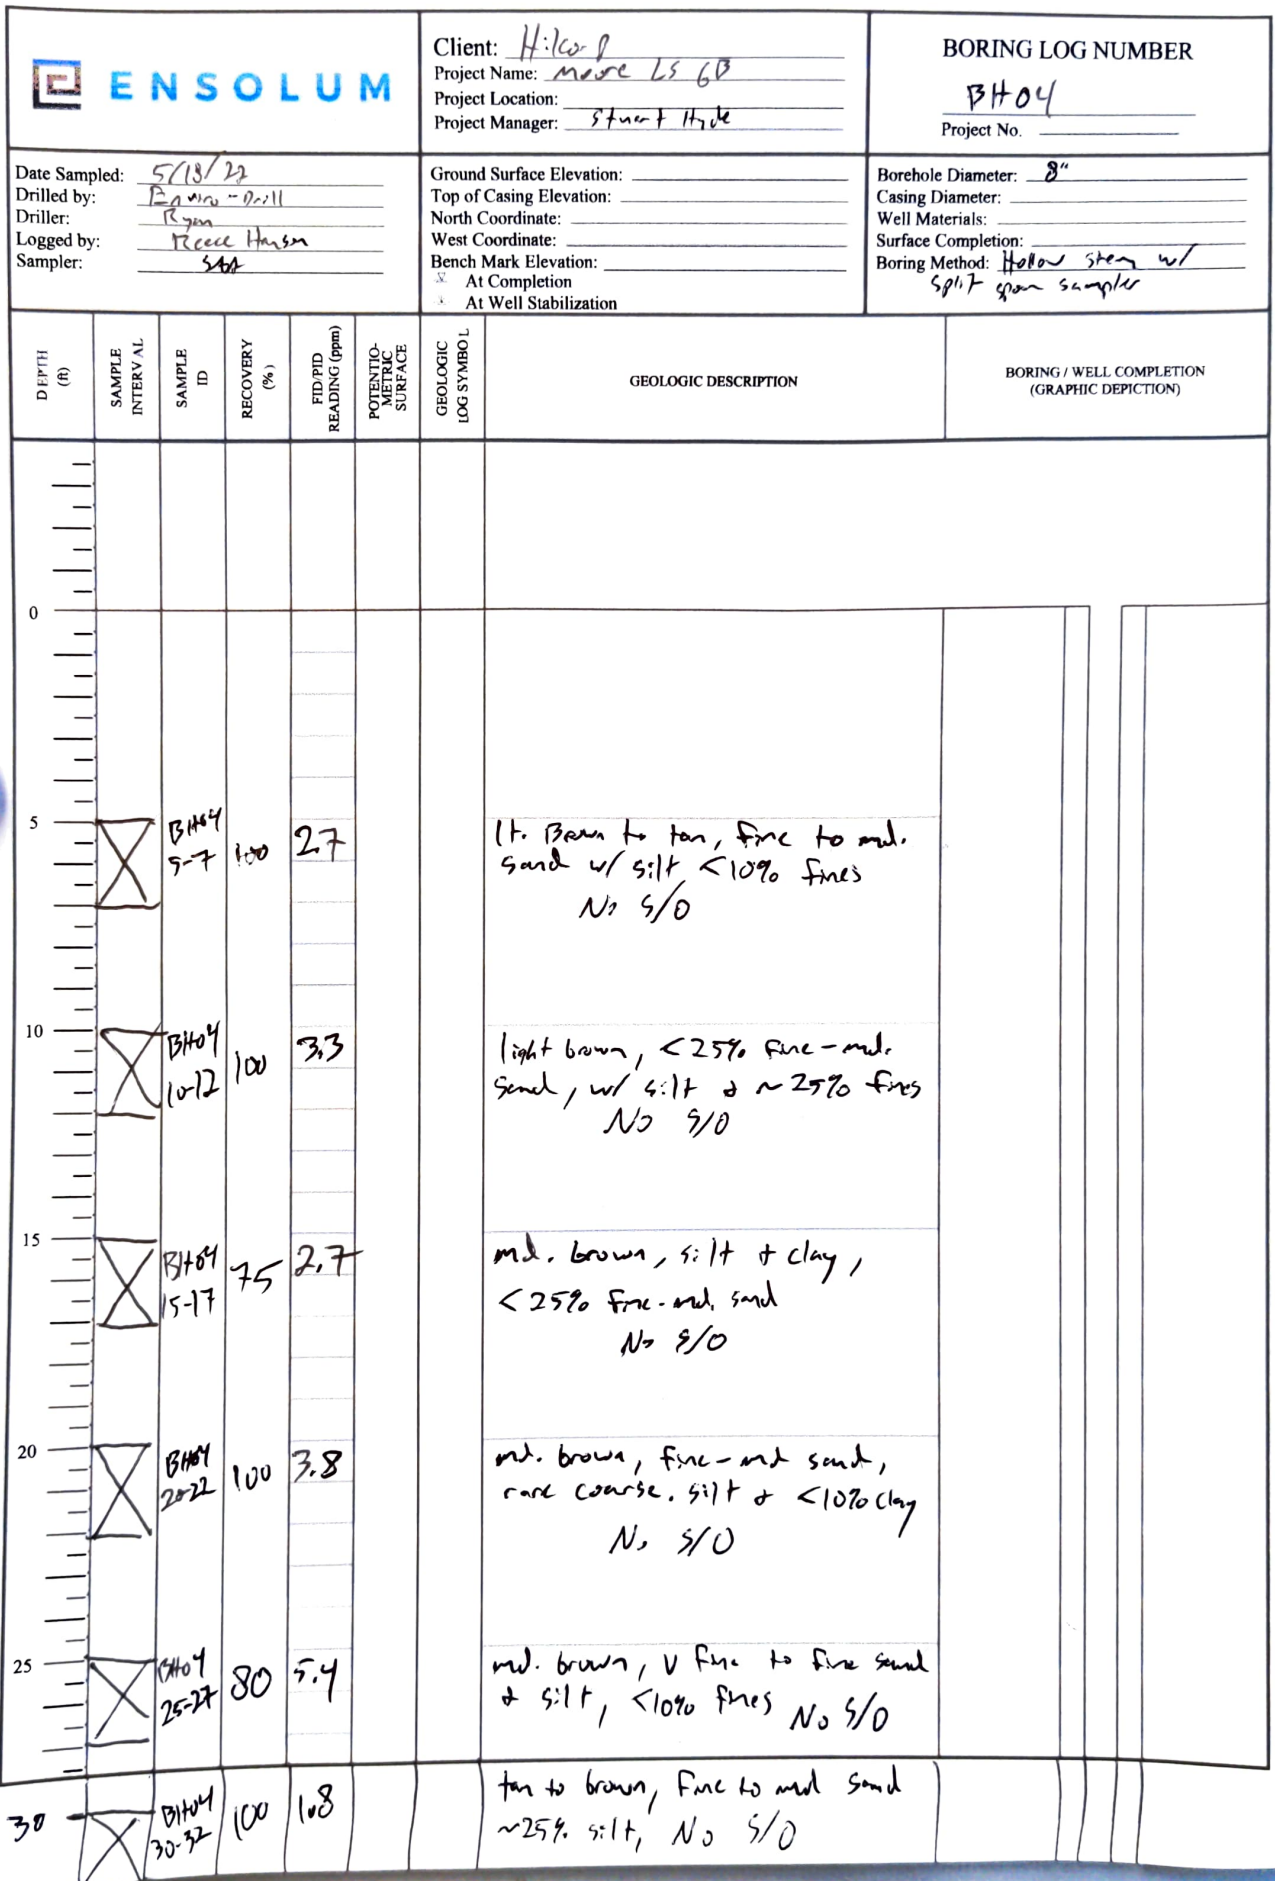 ENSOLUM
Client: Hilcorp
Project Name: Moore LS 6B
Project Location:
Project Manager: Stuart Hyde
BORING LOG NUMBER
BH04
Project No.
Date Sampled: 5/13/22
Drilled by: Enviro-Drill
Driller: Ryan
Logged by: Reece Hanson
Sampler: SAA
Ground Surface Elevation:
Top of Casing Elevation:
North Coordinate:
West Coordinate:
Bench Mark Elevation:
At Completion
At Well Stabilization
Borehole Diameter: 8"
Casing Diameter:
Well Materials:
Surface Completion:
Boring Method: Hollow stem w/
split spoon sampler
DEPTH (ft)
SAMPLE INTERVAL
SAMPLE ID
RECOVERY (%)
FID/PID READING (ppm)
POTENTIO-METRIC SURFACE
GEOLOGIC LOG SYMBOL
GEOLOGIC DESCRIPTION
BORING / WELL COMPLETION
(GRAPHIC DEPICTION)
0
5
BH04
5-7
100
2.7
lt. Brown to tan, fine to md.
sand w/ silt, <10% fines
No S/O
10
BH04
10-12
100
3.3
light brown, <25% fine-md.
sand, w/ silt & ~25% fines
No S/O
15
BH04
15-17
75
2.7
md. brown, silt + clay,
<25% fine-md. sand
No S/O
20
BH04
20-22
100
3.8
md. brown, fine-md sand,
rare coarse. silt & <10% clay
No S/O
25
BH04
25-27
80
5.4
md. brown, V fine to fine sand
& silt, <10% fines No S/O
30
BH04
30-32
100
1.8
tan to brown, Fine to md sand
~25% silt, No S/O